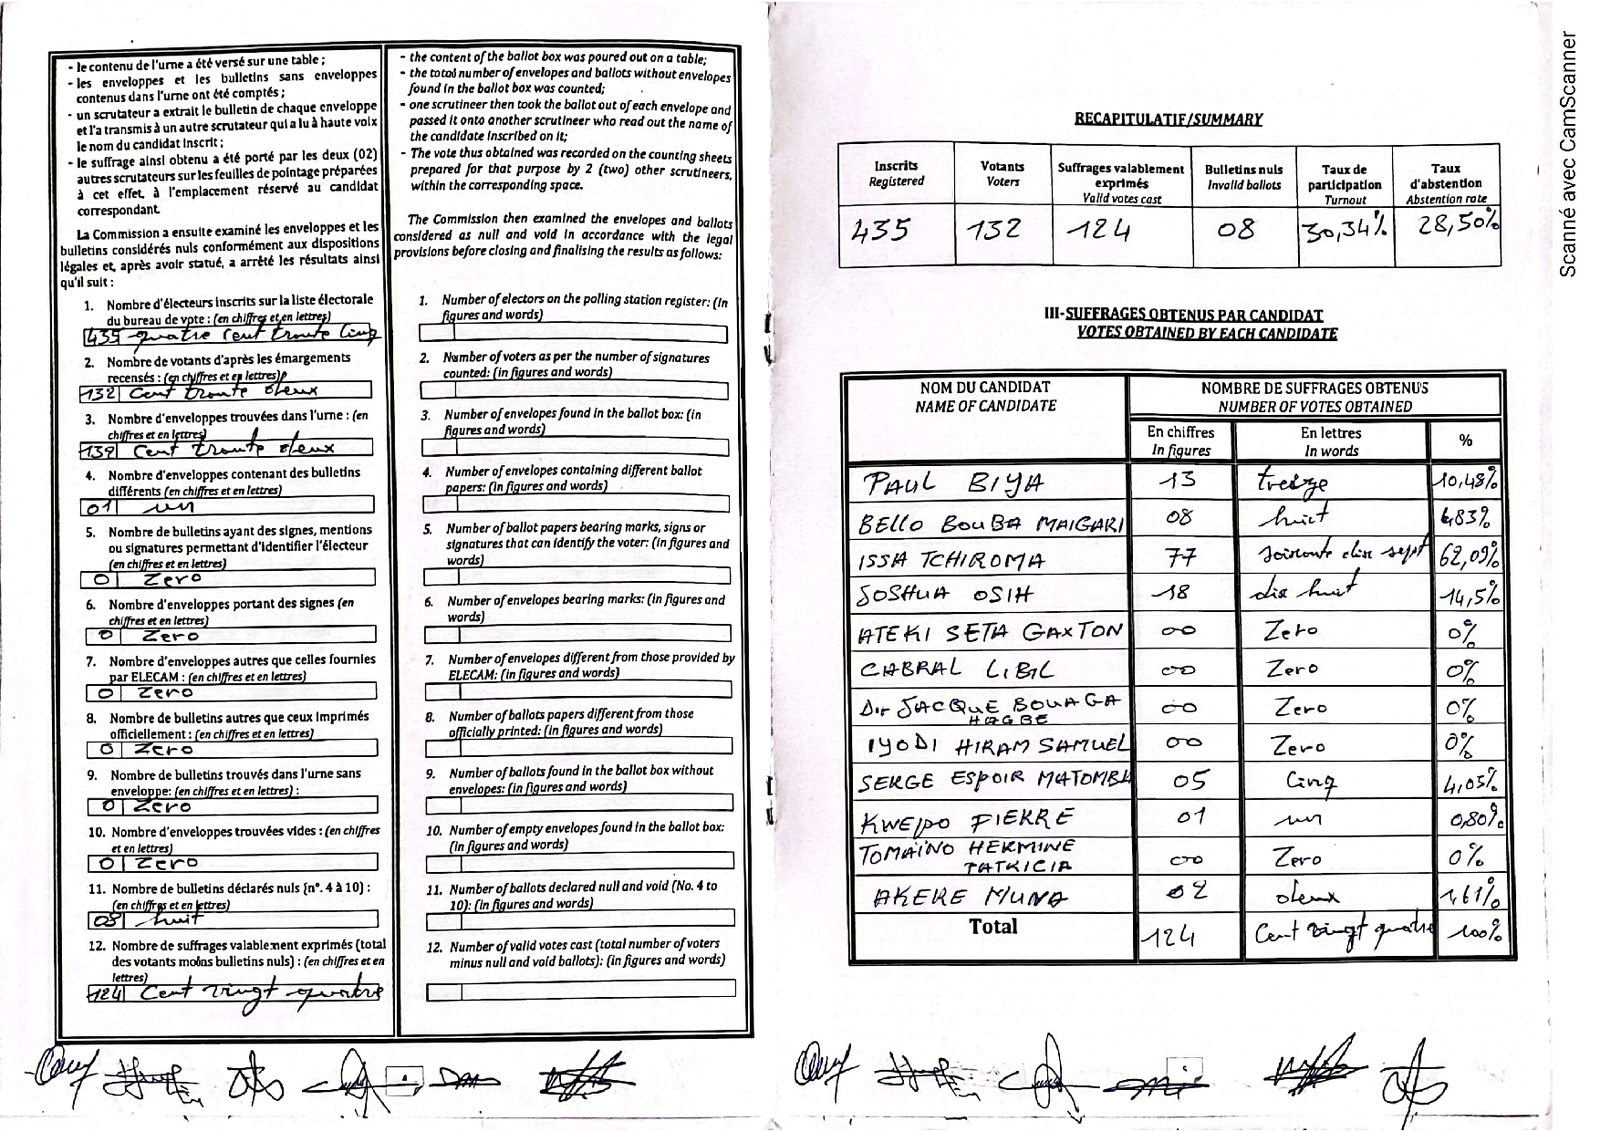 - le contenu de l'urne a été versé sur une table ;
- les enveloppes et les bulletins sans enveloppes
contenus dans l'urne ont été comptés ;
- un scrutateur a extrait le bulletin de chaque enveloppe
et l'a transmis à un autre scrutateur qui a lu à haute voix
le nom du candidat inscrit ;
- le suffrage ainsi obtenu a été porté par les deux (02)
autres scrutateurs sur les feuilles de pointage préparées
à cet effet, à l'emplacement réservé au candidat
correspondant.
La Commission a ensuite examiné les enveloppes et les
bulletins considérés nuls conformément aux dispositions
légales et, après avoir statué, a arrêté les résultats ainsi
qu'il suit :
1. Nombre d'électeurs inscrits sur la liste électorale
du bureau de vote : (en chiffres et en lettres)
435 quatre cent trente cinq
2. Nombre de votants d'après les émargements
recensés : (en chiffres et en lettres)
132 Cent trente deux
3. Nombre d'enveloppes trouvées dans l'urne : (en
chiffres et en lettres)
132 Cent trente deux
4. Nombre d'enveloppes contenant des bulletins
différents (en chiffres et en lettres)
01 un
5. Nombre de bulletins ayant des signes, mentions
ou signatures permettant d'identifier l'électeur
(en chiffres et en lettres)
0 Zero
6. Nombre d'enveloppes portant des signes (en
chiffres et en lettres)
0 Zero
7. Nombre d'enveloppes autres que celles fournies
par ELECAM : (en chiffres et en lettres)
0 Zero
8. Nombre de bulletins autres que ceux imprimés
officiellement : (en chiffres et en lettres)
0 Zero
9. Nombre de bulletins trouvés dans l'urne sans
enveloppe: (en chiffres et en lettres) :
0 Zero
10. Nombre d'enveloppes trouvées vides : (en chiffres
et en lettres)
0 Zero
11. Nombre de bulletins déclarés nuls (n°. 4 à 10) :
(en chiffres et en lettres)
08 huit
12. Nombre de suffrages valablement exprimés (total
des votants moins bulletins nuls) : (en chiffres et en
lettres)
124 Cent vingt quatre
- the content of the ballot box was poured out on a table;
- the total number of envelopes and ballots without envelopes
found in the ballot box was counted;
- one scrutineer then took the ballot out of each envelope and
passed it onto another scrutineer who read out the name of
the candidate inscribed on it;
- The vote thus obtained was recorded on the counting sheets
prepared for that purpose by 2 (two) other scrutineers,
within the corresponding space.
The Commission then examined the envelopes and ballots
considered as null and void in accordance with the legal
provisions before closing and finalising the results as follows:
1. Number of electors on the polling station register: (in
figures and words)
2. Number of voters as per the number of signatures
counted: (in figures and words)
3. Number of envelopes found in the ballot box: (in
figures and words)
4. Number of envelopes containing different ballot
papers: (in figures and words)
5. Number of ballot papers bearing marks, signs or
signatures that can identify the voter: (in figures and
words)
6. Number of envelopes bearing marks: (in figures and
words)
7. Number of envelopes different from those provided by
ELECAM: (in figures and words)
8. Number of ballots papers different from those
officially printed: (in figures and words)
9. Number of ballots found in the ballot box without
envelopes: (in figures and words)
10. Number of empty envelopes found in the ballot box:
(in figures and words)
11. Number of ballots declared null and void (No. 4 to
10): (in figures and words)
12. Number of valid votes cast (total number of voters
minus null and void ballots): (in figures and words)
RECAPITULATIF/SUMMARY
Inscrits Registered | Votants Voters | Suffrages valablement exprimés Valid votes cast | Bulletins nuls Invalid ballots | Taux de participation Turnout | Taux d'abstention Abstention rate
435 | 132 | 124 | 08 | 30,34% | 28,50%
III-SUFFRAGES OBTENUS PAR CANDIDAT
VOTES OBTAINED BY EACH CANDIDATE
NOM DU CANDIDAT NAME OF CANDIDATE | NOMBRE DE SUFFRAGES OBTENUS NUMBER OF VOTES OBTAINED
En chiffres In figures | En lettres In words | %
PAUL BIYA | 13 | treize | 10,48%
BELLO BOUBA MAIGARI | 08 | huit | 6,83%
ISSA TCHIROMA | 77 | soixante dix sept | 62,09%
JOSHUA OSIH | 18 | dix huit | 14,5%
ATEKI SETA GAXTON | 00 | Zero | 0%
CABRAL LIBIL | 00 | Zero | 0%
JACQUE BOUAGA HAGBE | 00 | Zero | 0%
IYODI HIRAM SAMUEL | 00 | Zero | 0%
SERGE ESPOIR MATOMBA | 05 | Cinq | 4,03%
KWEPO PIERRE | 01 | un | 0,80%
TOMAÏNO HERMINE PATRICIA | 00 | Zero | 0%
AKERE MUNA | 02 | deux | 1,61%
Total | 124 | Cent vingt quatre | 100%
Scanné avec CamScanner